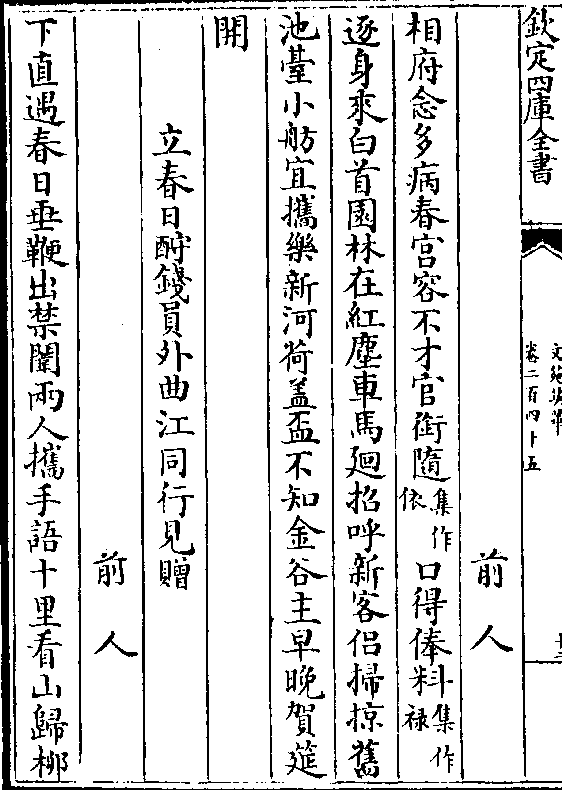 欽定四庫全書
文苑英華
卷二百四十五
前人
相府念多病春宫容不才官銜隨集作依口得俸料集作禄
逐身來白首園林在紅塵車馬廻招呼新客侣掃掠舊
池臺小舫宜攜樂新河荷盖盃不知金谷主早晚賀筵
開
立春日酧錢員外曲江同行見贈
前人
下直遇春日垂鞭出禁闈兩人攜手語十里看山歸栁